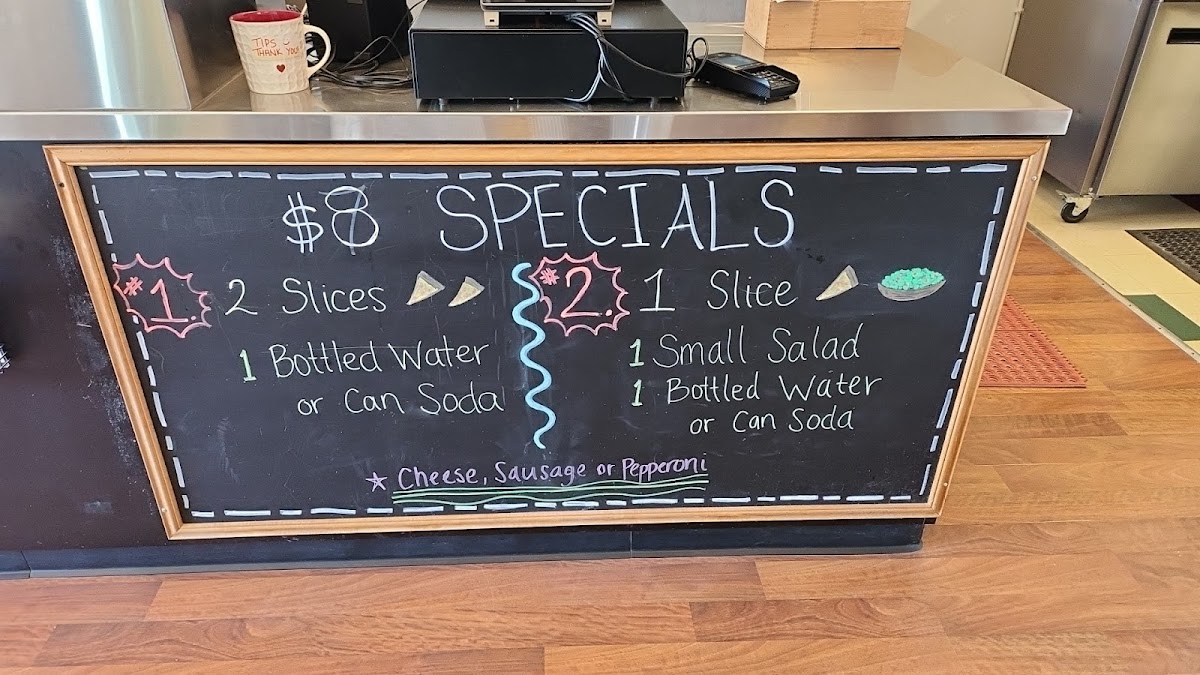 TIPS
THANK YOU!
$8 SPECIALS
#1. 2 Slices
1 Bottled Water
or Can Soda
#2. 1 Slice
1 Small Salad
1 Bottled Water
or Can Soda
Cheese, Sausage or Pepperoni